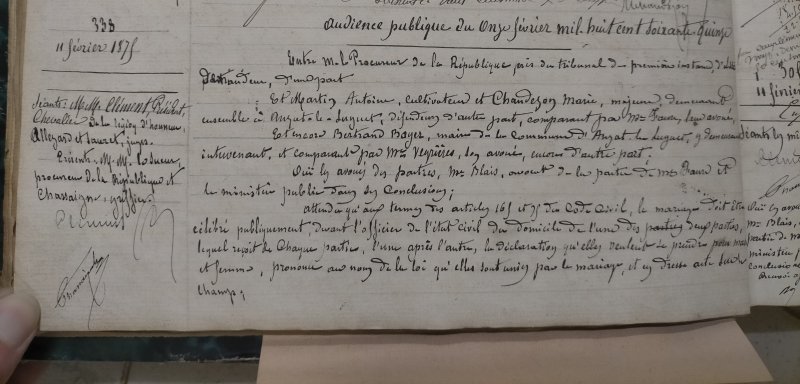 333
11 février 1875
Séants: MM. Clément, Président,
Chevalier de la légion d'honneur,
Allezard et Sauret, juges.
Présents: M. M. Le Sueur,
procureur de la République et
Chassaigne, greffier.
Audience publique du Onze février mil huit cent soixante quinze
Entre M. le Procureur de la République près du tribunal de première instance d'
Demandeur, d'une part
Et Martin Antoine, cultivateur et Chandezon Marie, majeure, demeurant
ensemble à Anzat-le-Luguet, défendeurs d'autre part, comparant par Me Faure, leur avoué,
Et encore Bertrand Boyer, maire de la Commune d'Anzat-le-Luguet, y demeurant
intervenant, et comparant par Me Veyrières, son avoué, encore d'autre part;
Ouï les avoués des parties, Me Blais, avocat de la partie de Me Faure et
le ministère public dans ses Conclusions;
attendu qu'aux termes des articles 165 et 75 du Code Civil, le mariage doit être
célébré publiquement, devant l'officier de l'état civil du domicile de l'une des parties deux parties,
lequel reçoit de Chaque partie, l'une après l'autre, la déclaration qu'elles veulent se prendre pour mari
et femme, prononce au nom de la loi qu'elles sont unies par le mariage, et en dresse acte sur le
champ;
11 février